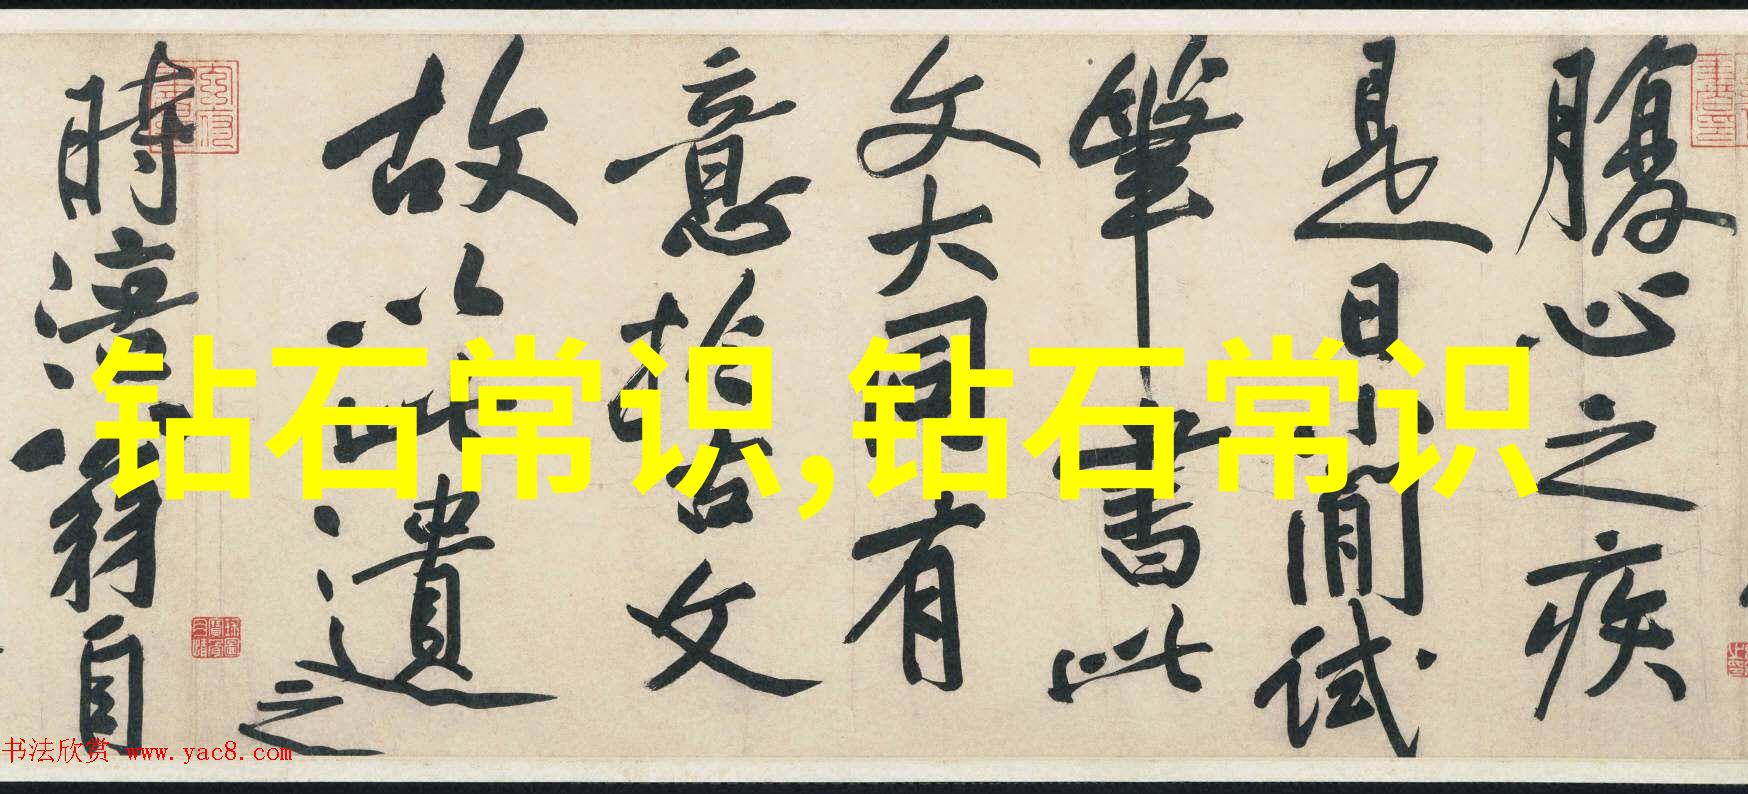 腹心之疾
是日小閒試
筆書此
文大同有
意於古文
故以此遺之
時涪翁自
钻石常识,钻石常识
书法欣赏 www.yac8.com